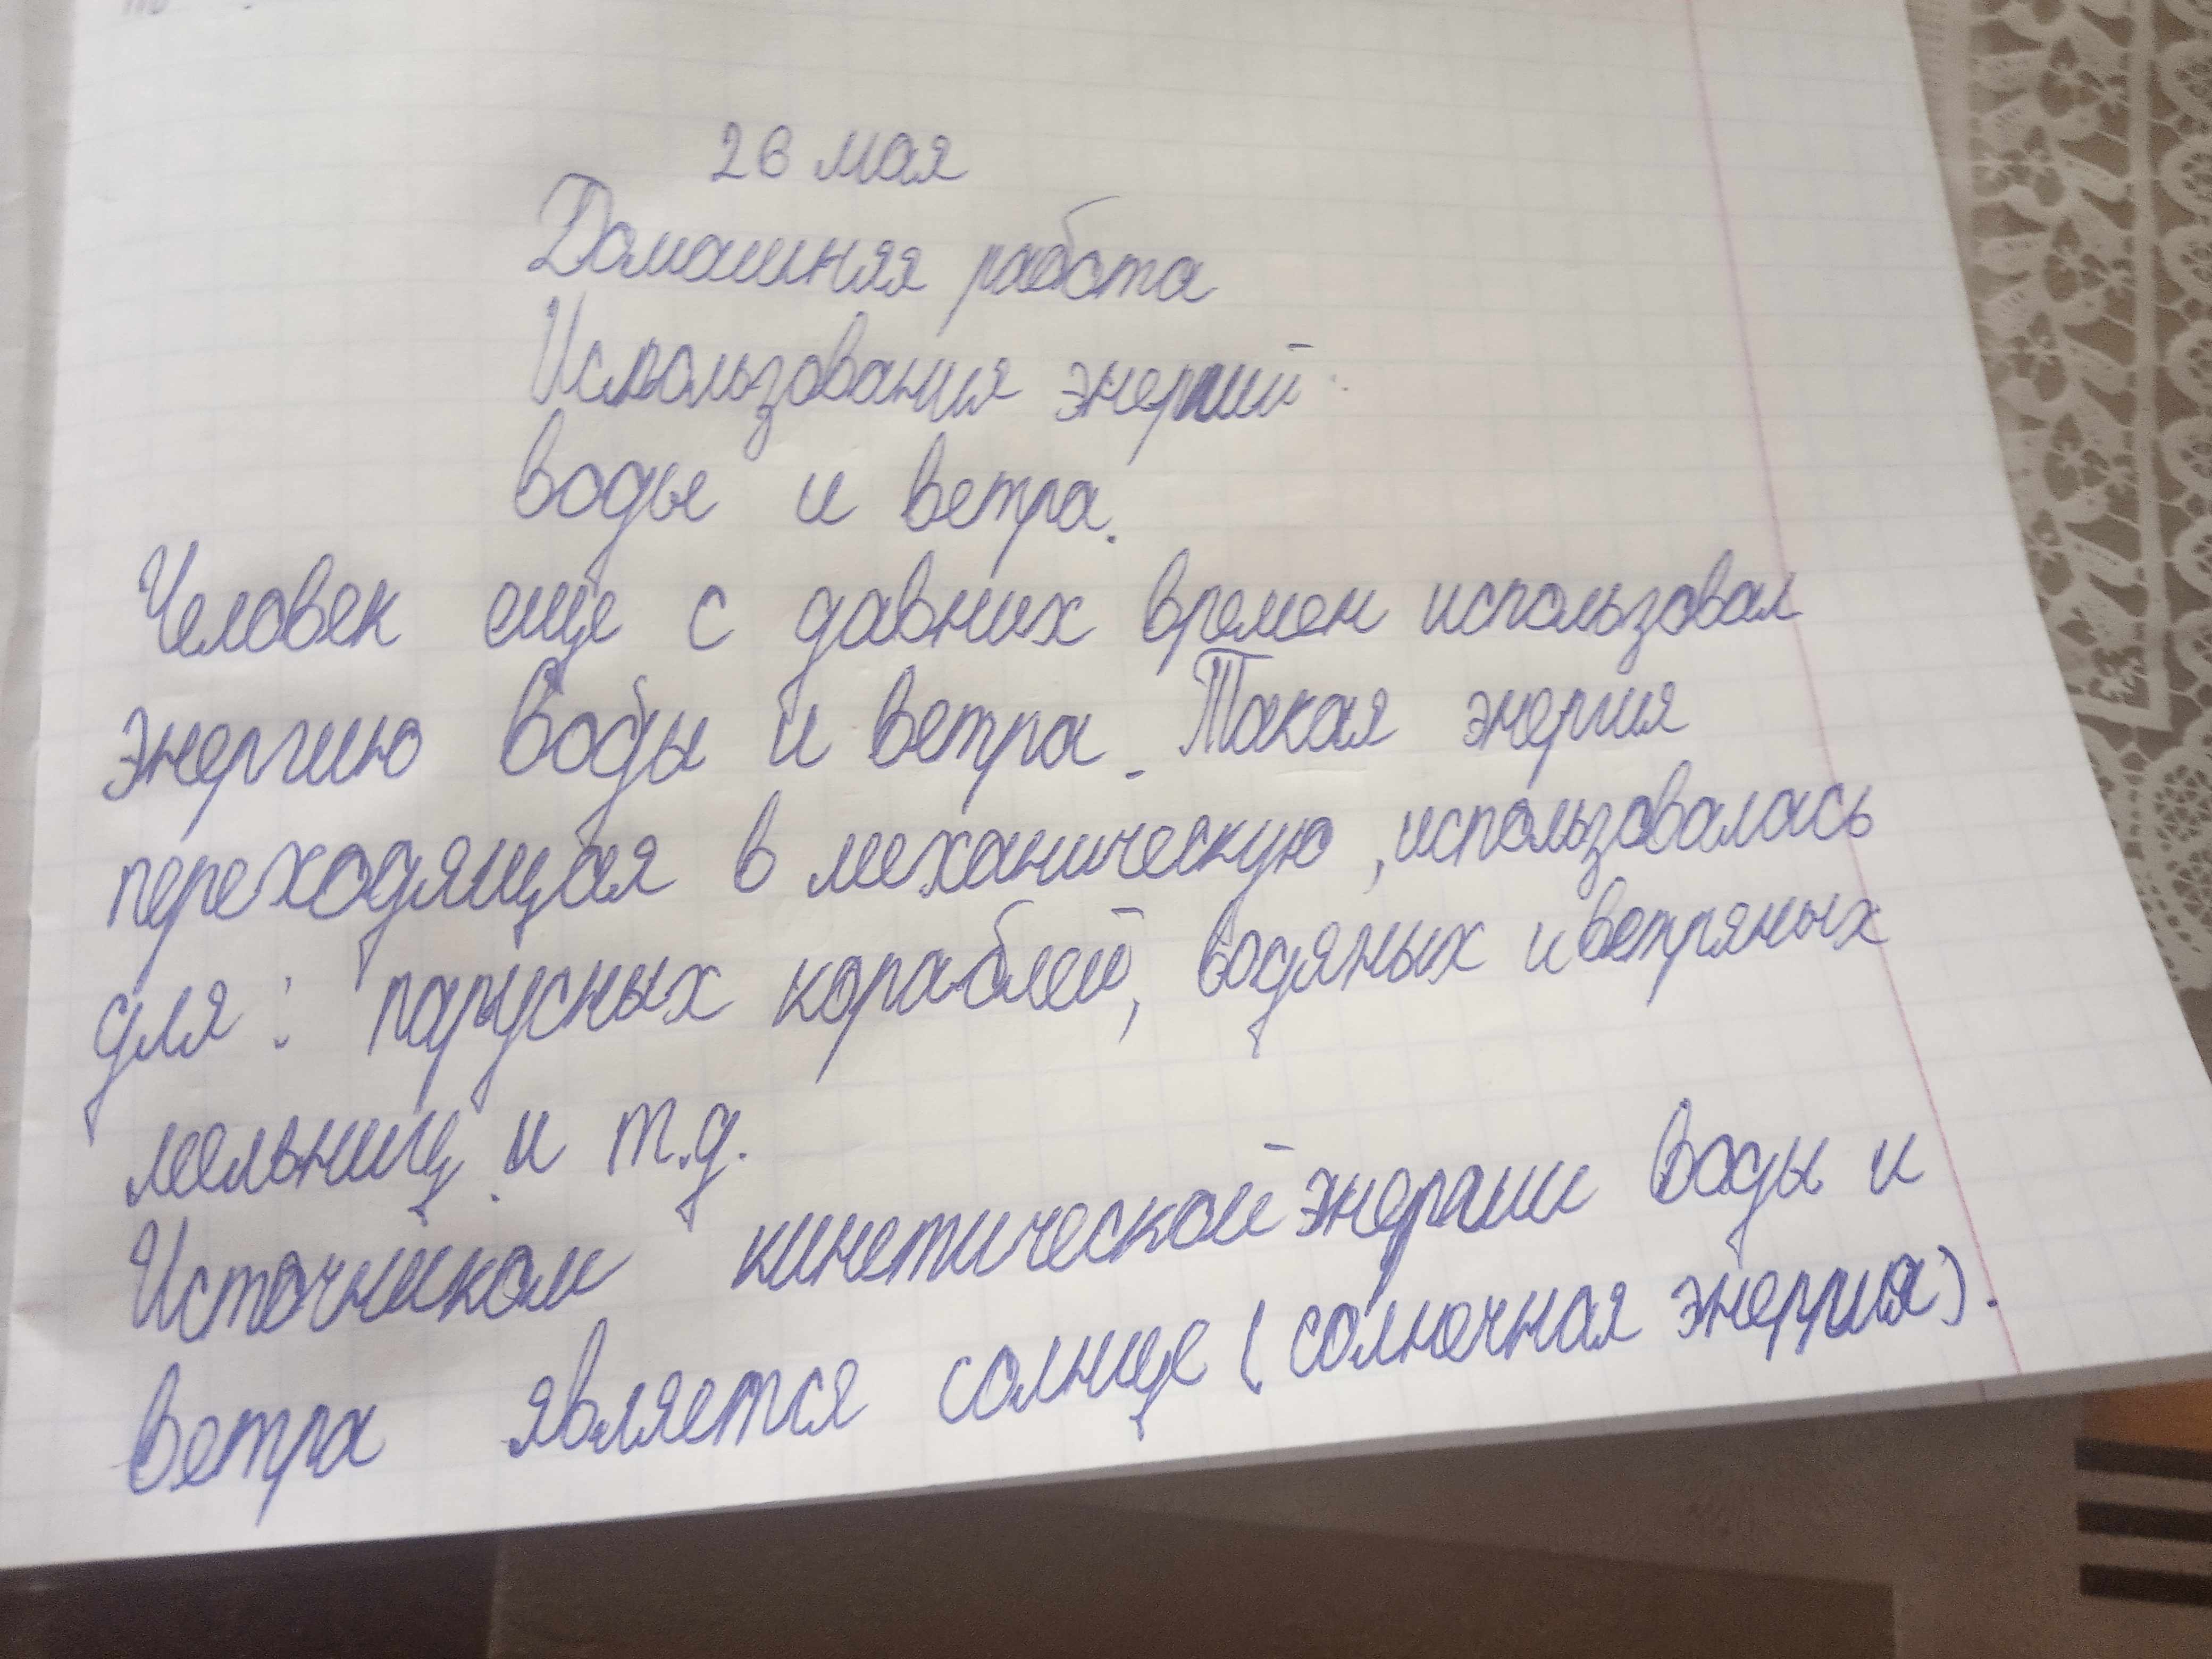 26 мая
Домашняя работа
Использования энергий
воды и ветра.
Человек еще с давних времен использовал
энергию воды и ветра. Такая энергия
переходящая в механическую, использовалась
для: парусных кораблей, водяных и ветряных
мельниц и т.д.
Источником кинетической энергии воды и
ветра является солнце (солнечная энергия).